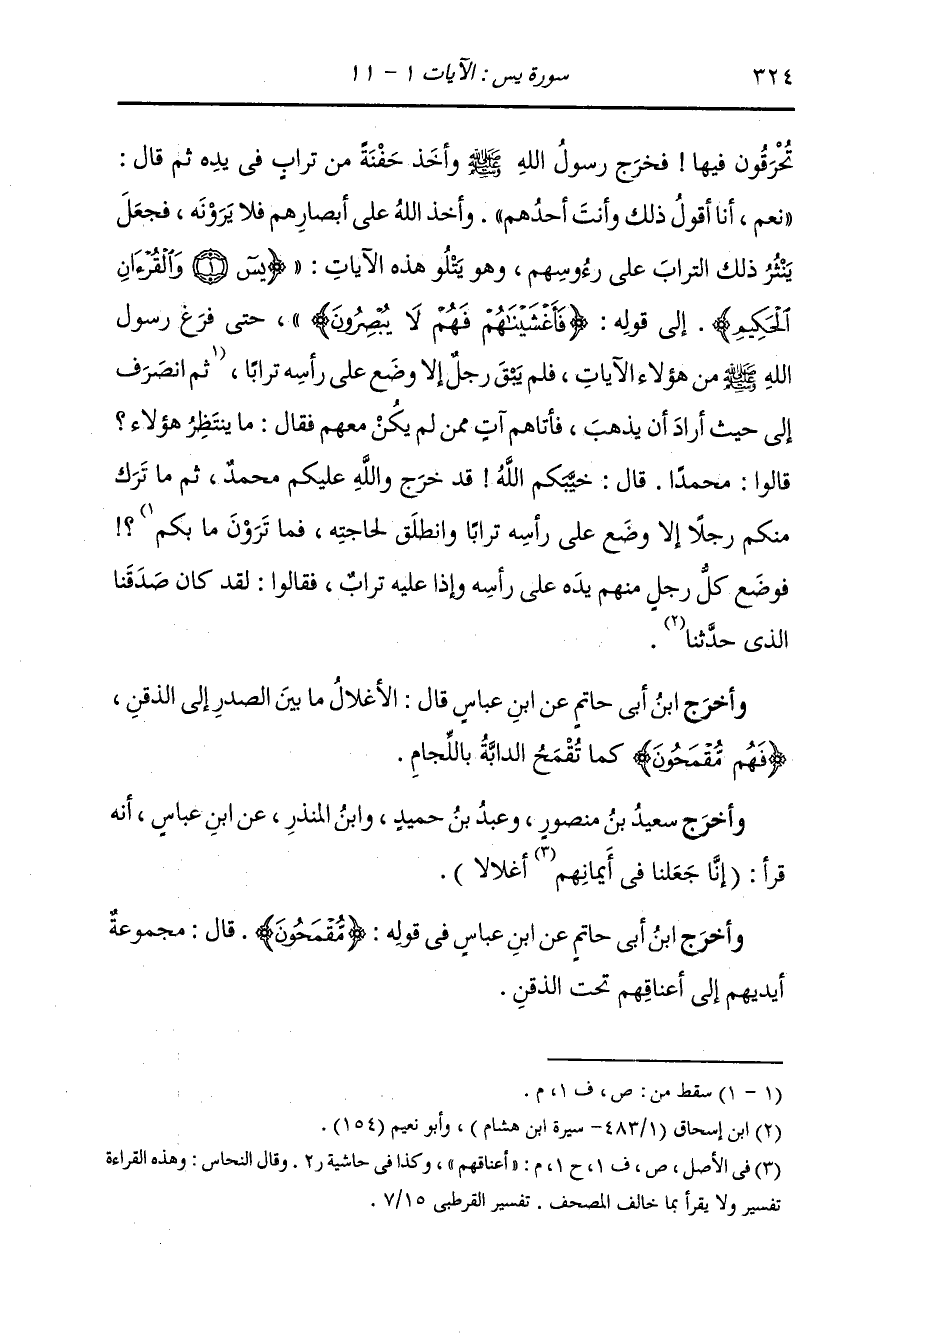 ٣٢٤ سورة يس : الآيات ١ - ١١
تُحْرَقُون فيها ! فخرَج رسولُ اللهِ ﷺ وأخَذ حَفْنَةً من ترابٍ فى يدِه ثم قال :
«نعم ، أنا أقولُ ذلك وأنتَ أحدُهم» . وأخذ اللهُ على أبصارِهم فلا يَرَوْنَه ، فجعَلَ
يَنْثُرُ ذلك الترابَ على رءُوسِهم ، وهو يَتْلُو هذه الآياتِ : « ﴿يسٓ ۝١ وَٱلْقُرْءَانِ
ٱلْحَكِيمِ﴾ . إلى قولِه : ﴿فَأَغْشَيْنَٰهُمْ فَهُمْ لَا يُبْصِرُونَ﴾ » ، حتى فرَغ رسول
اللهِ ﷺ من هؤلاء الآياتِ ، فلم يَبْقَ رجلٌ إلا وضَع على رأسِه ترابًا ، (١ثم انصَرَف
إلى حيث أرادَ أن يذهبَ ، فأتاهم آتٍ ممن لم يكُنْ معهم فقال : ما ينتَظِرُ هؤلاء ؟
قالوا : محمدًا . قال : خيَّبَكم اللَّهُ ! قد خرَج واللَّهِ عليكم محمدٌ ، ثم ما تَرَك
منكم رجلًا إلا وضَع على رأسِه ترابًا وانطلَق لحاجتِه ، فما تَرَوْنَ ما بكم١) ؟!
فوضَع كلُّ رجلٍ منهم يدَه على رأسِه وإذا عليه ترابٌ ، فقالوا : لقد كان صَدَقَنا
الذى حدَّثنا(٢) .
وأخرَج ابنُ أبى حاتمٍ عن ابنِ عباسٍ قال : الأغلالُ ما بينَ الصدرِ إلى الذقنِ ،
﴿فَهُم مُّقْمَحُونَ﴾ كما تُقْمَحُ الدابَّةُ باللِّجامِ .
وأخرَج سعيدُ بنُ منصورٍ ، وعبدُ بنُ حميدٍ ، وابنُ المنذرِ ، عن ابنِ عباسٍ ، أنه
قرأ : ( إنَّا جَعَلنا فى أَيمانِهم(٣) أغلالا ) .
وأخرَج ابنُ أبى حاتمٍ عن ابنِ عباسٍ فى قولِه : ﴿مُّقْمَحُونَ﴾ . قال : مجموعةٌ
أيديهم إلى أعناقِهم تحت الذقنِ .
(١ - ١) سقط من : ص ، ف ١ ، م .
(٢) ابن إسحاق (٤٨٣/١ - سيرة ابن هشام ) ، وأبو نعيم (١٥٤) .
(٣) فى الأصل ، ص ، ف ١ ، ح ١ ، م : « أعناقهم » ، وكذا فى حاشية ر٢ . وقال النحاس : وهذه القراءة
تفسير ولا يقرأ بما خالف المصحف . تفسير القرطبى ٧/١٥ .